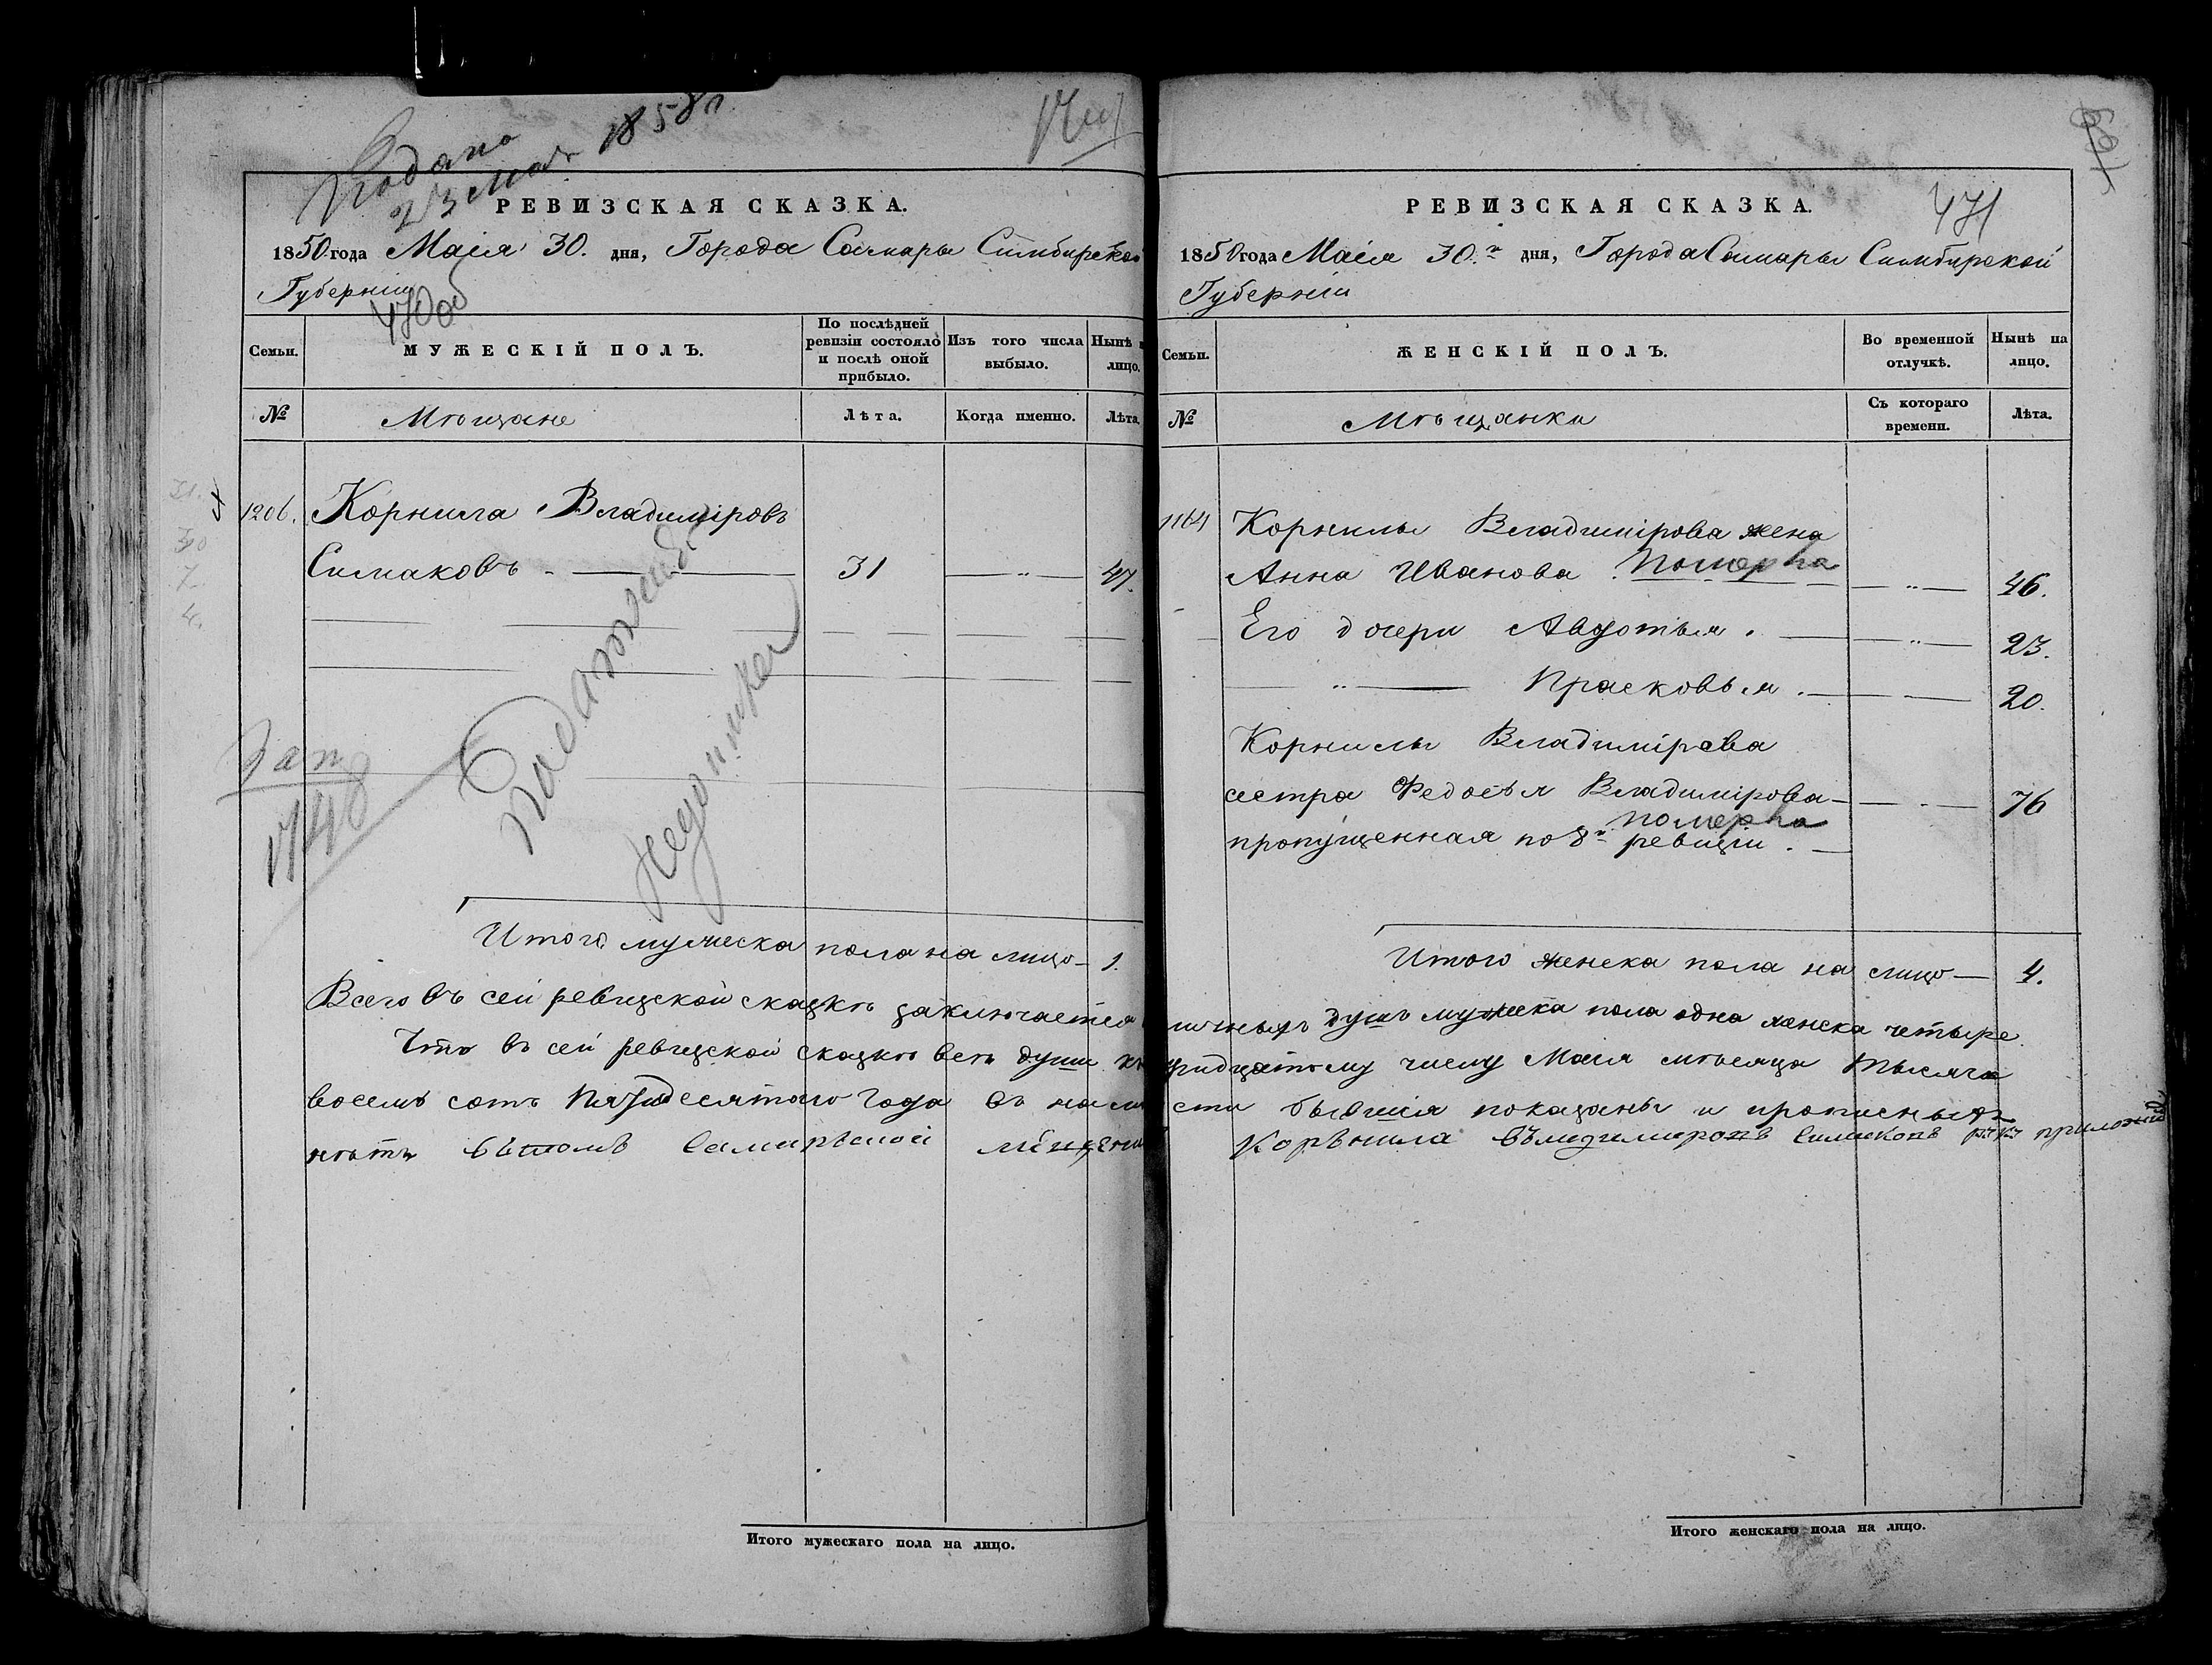 Подана
23 Мая 1858 г
РЕВИЗСКАЯ СКАЗКА.
1850 года Маія 30. дня, Города Самары Симбирской
Губерніи
470 об
Семьи.
МУЖЕСКІЙ ПОЛЪ.
По послѣдней ревизіи состояло и послѣ оной прибыло.
Изъ того числа выбыло.
Нынѣ лицо.
№
Мѣщане
Лѣта.
Когда именно.
Лѣта.
1206. Корнила Владиміровъ
Симаковъ 31 47.
недоимка
Зап
1748
Итого мужеска пола на лицо 1.
Всего въ сей ревизской сказкѣ заключается
Что въ сей ревизской сказкѣ всѣ души
восемь сотъ пятидесятаго года въ
нѣтъ въ томъ самарской
Итого мужескаго пола на лицо.
471
РЕВИЗСКАЯ СКАЗКА.
1850 года Маія 30.го дня, Города Самары Симбирской
Губерніи
Семьи.
ЖЕНСКІЙ ПОЛЪ.
Во временной отлучкѣ.
Нынѣ на лицо.
№
Мѣщанки
Съ котораго времени.
Лѣта.
1164 Корнилы Владимірова жена
Анна Иванова Померла 46.
Его дочери Авдотья. 23.
Прасковья. 20.
Корнилы Владимірова
сестра Федосья Владимірова 76
померла
пропущенная по 8й ревизіи.
Итого женска пола на лицо 4.
душъ мужеска пола одна женска четыре.
тридцатому числу Маія мѣсяца тысяча
сти бывшія показаны и прописныхъ
Корънила въладимеровъ симаковъ приложилъ
Итого женскаго пола на лицо.